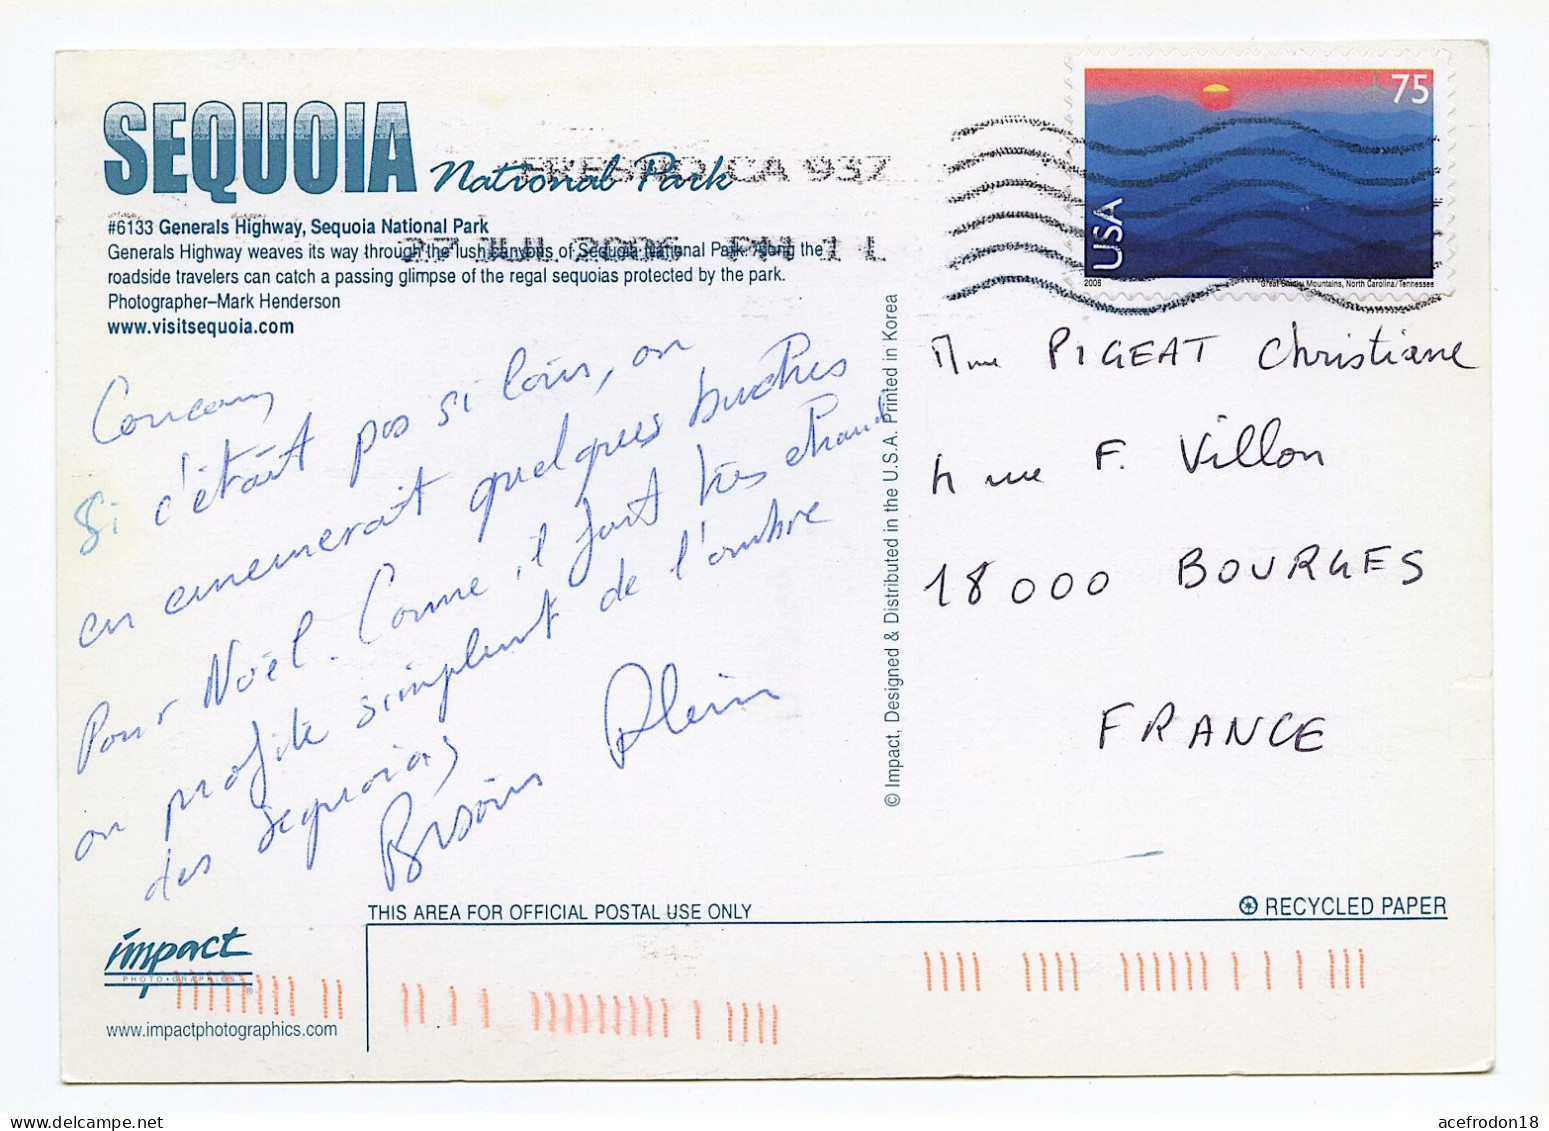 SEQUOIA
National Park
FRESNO CA 937
27 JUL 2006 PM 1 L
#6133 Generals Highway, Sequoia National Park
Generals Highway weaves its way through the lush canyons of Sequoia National Park. Along the
roadside travelers can catch a passing glimpse of the regal sequoias protected by the park.
Photographer–Mark Henderson
www.visitsequoia.com
75
USA
2006
Great Smoky Mountains, North Carolina/Tennessee
Coucou,
Si c'était pas si loin, on
en emmenerait quelques buches
Pour Noël. Comme il fait très chaud
on profite simplement de l'ombre
des sequoias,
Bisous Alain
© Impact, Designed & Distributed in the U.S.A. Printed in Korea
Mme PIGEAT Christiane
4 rue F. Villon
18000 BOURGES
FRANCE
THIS AREA FOR OFFICIAL POSTAL USE ONLY
RECYCLED PAPER
impact
PHOTO•GRAPHICS
www.impactphotographics.com
acefrodon18